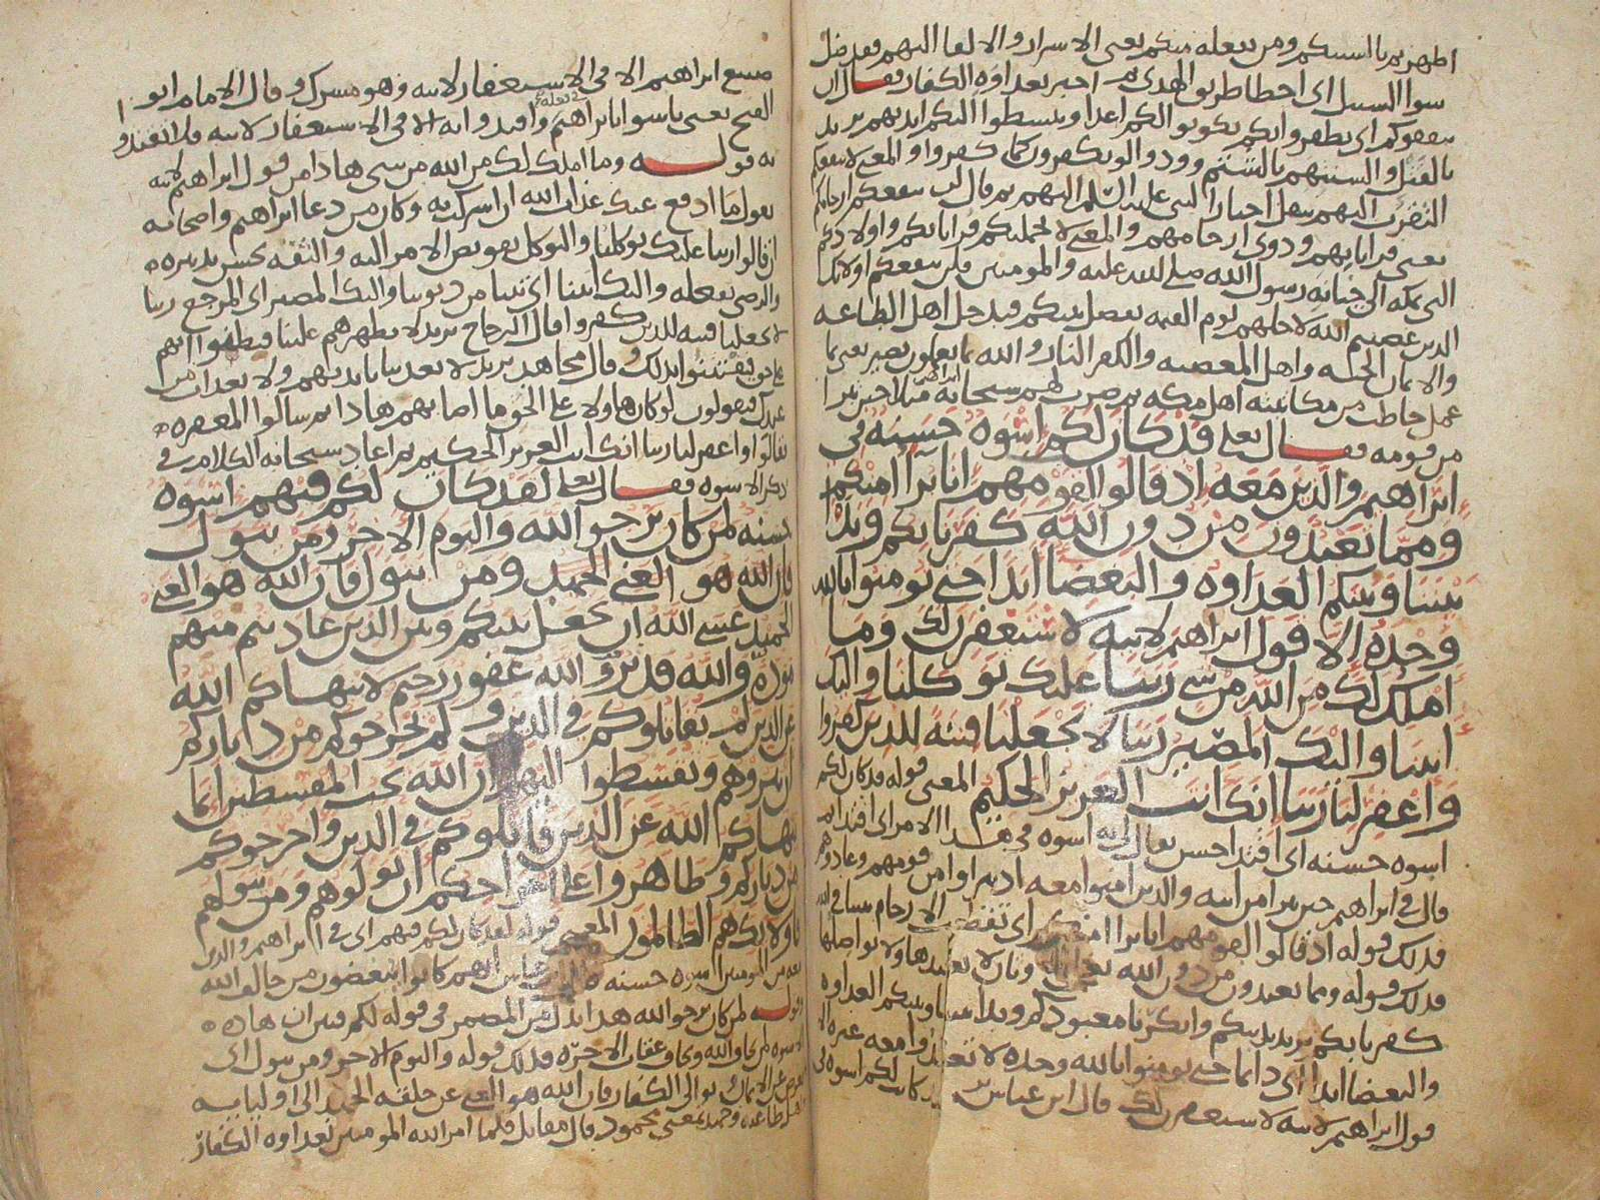 اظهرتم بالسنتكم ومن يفعله منكم يعني الاسرار والالقا اليهم فقد ضل
سوا السبيل اي اخطا طريق الهدى ثم اخبر بعداوة الكفار فقال ان
يثقفوكم اي يظفروا بكم يكونوا لكم اعدا ويبسطوا اليكم ايديهم يريد
بالقتل والسنتهم بالشتم وودوا لو تكفرون كما كفروا والمعنى لا ينفعكم
التقرب اليهم بنقل اخبار النبي عليه السلم اليهم ثم قال لن تنفعكم ارحامكم
يعني قراباتهم وذوي ارحامهم والمعنى لا تحملنكم قراباتكم واولادكم
التي بمكة الى خيانة رسول الله صلى الله عليه والمومنين فلن تنفعكم اولائك
الذين عصيتم الله لاجلهم يوم القيمة يفصل بينكم فيدخل اهل الطاعة
والايمان الجنة واهل المعصية والكفر النار والله بما تعملون بصير يعني بما
عمل حاطب من مكاتبته اهل مكة ثم ضرب لهم سبحانه ابراهيم مثلا حين تبرا
من قومه فقال تعلى قد كان لكم اسوة حسنة في
ابراهيم والذين معه اذ قالوا لقومهم انا براا منكم
ومما تعبدون من دون الله كفرنا بكم وبدا
بيننا وبينكم العداوة والبغضا ابدا حتى تومنوا بالله
وحده الا قول ابراهيم لابيه لاستغفرن لك وما
املك لك من الله من شي ربنا عليك توكلنا واليك
انبنا واليك المصير ربنا لا تجعلنا فتنة للذين كفروا
واغفر لنا ربنا انك انت العزيز الحكيم المعنى قوله قد كان لكم
اسوة حسنة اي اقتدا حسن يقال لي به اسوة في هذا الامر اي اقتدا ثم
قال في ابراهيم حين تبرا من ابيه والذين امنوا معه اذ تبراوا من قومهم وعادوهم
فذلك قوله اذ قالوا لقومهم انا براا منكم اي تقطعت الارحام بيننا في الله
فذلك قوله ومما تعبدون من دون الله يعني ولا تواصلها
كفرنا بكم يريد بدينكم وانكرنا معبودكم وبدا بيننا وبينكم العداوة
والبغضا ابدا اي دايما حتى تومنوا بالله وحده لا تعبدوا معه غيره الا
قول ابراهيم لابيه لاستغفرن لك قال ابن عباس كانت لكم اسوة في
صنيع ابراهيم الا في الاستغفار لابيه وهو مشرك وقال الامام ابو
الفتح يعني تاسوا بابراهيم في فعله واقتدوا به الا في الاستغفار لابيه فلا تقتدوا
به قوله وما املك لك من الله من شي هاذا من قول ابراهيم لابيه
يقول ما ادفع عنك عذاب الله ان اشركت به وكان من دعا ابراهيم واصحابه
ان قالوا ربنا عليك توكلنا والتوكل تفويض الامر اليه والثقة بحسن تدبيره
والرضى بفعله واليك انبنا اي تبنا من ذنوبنا واليك المصير اي المرجع ربنا
لا تجعلنا فتنة للذين كفروا قال الزجاج يريد لا تظهرهم علينا فيظنوا انهم
على حق فيفتتنوا بذلك وقال مجاهد يريد لا تعذبنا بايديهم ولا بعذاب من
عندك فيقولون لو كان هاولا على الحق ما اصابهم هاذا ثم سالوا المغفرة
فقالوا واغفر لنا ربنا انك انت العزيز الحكيم ثم اعاد سبحانه الكلام في
ذكر الاسوة فقال تعلى لقد كان لكم فيهم اسوة
حسنة لمن كان يرجوا الله واليوم الاخر ومن يتول
فان الله هو الغني الحميد ومن يتول فان الله هو الغني
الحميد عسى الله ان يجعل بينكم وبين الذين عاديتم منهم
مودة والله قدير والله غفور رحيم لا ينهاكم الله
عن الذين لم يقاتلوكم في الدين ولم يخرجوكم من دياركم
ان تبروهم وتقسطوا اليهم ان الله يحب المقسطين انما
ينهاكم الله عن الذين قاتلوكم في الدين واخرجوكم
من دياركم وظاهروا على اخراجكم ان تولوهم ومن يتولهم
فاولايك هم الظالمون المعنى قوله لقد كان لكم فيهم اي في ابراهيم والذين
معه من المومنين اسوة حسنة ابن عباس انهم كانوا يبغضون من خالف الله
قوله لمن كان يرجوا الله هذا بدل من المضمر في قوله لكم فبين ان هاذه
الاسوة لمن يخاف الله ويخاف عقاب الاخرة فذلك قوله واليوم الاخر ومن يتول اي
يعرض عن الايمان توالى الكفار فان الله هو الغني عن خلقه الحميد الى اوليايه
اهل طاعته وحميد بمعنى محمود قال مقاتل فلما امر الله المومنين بعداوة الكفار